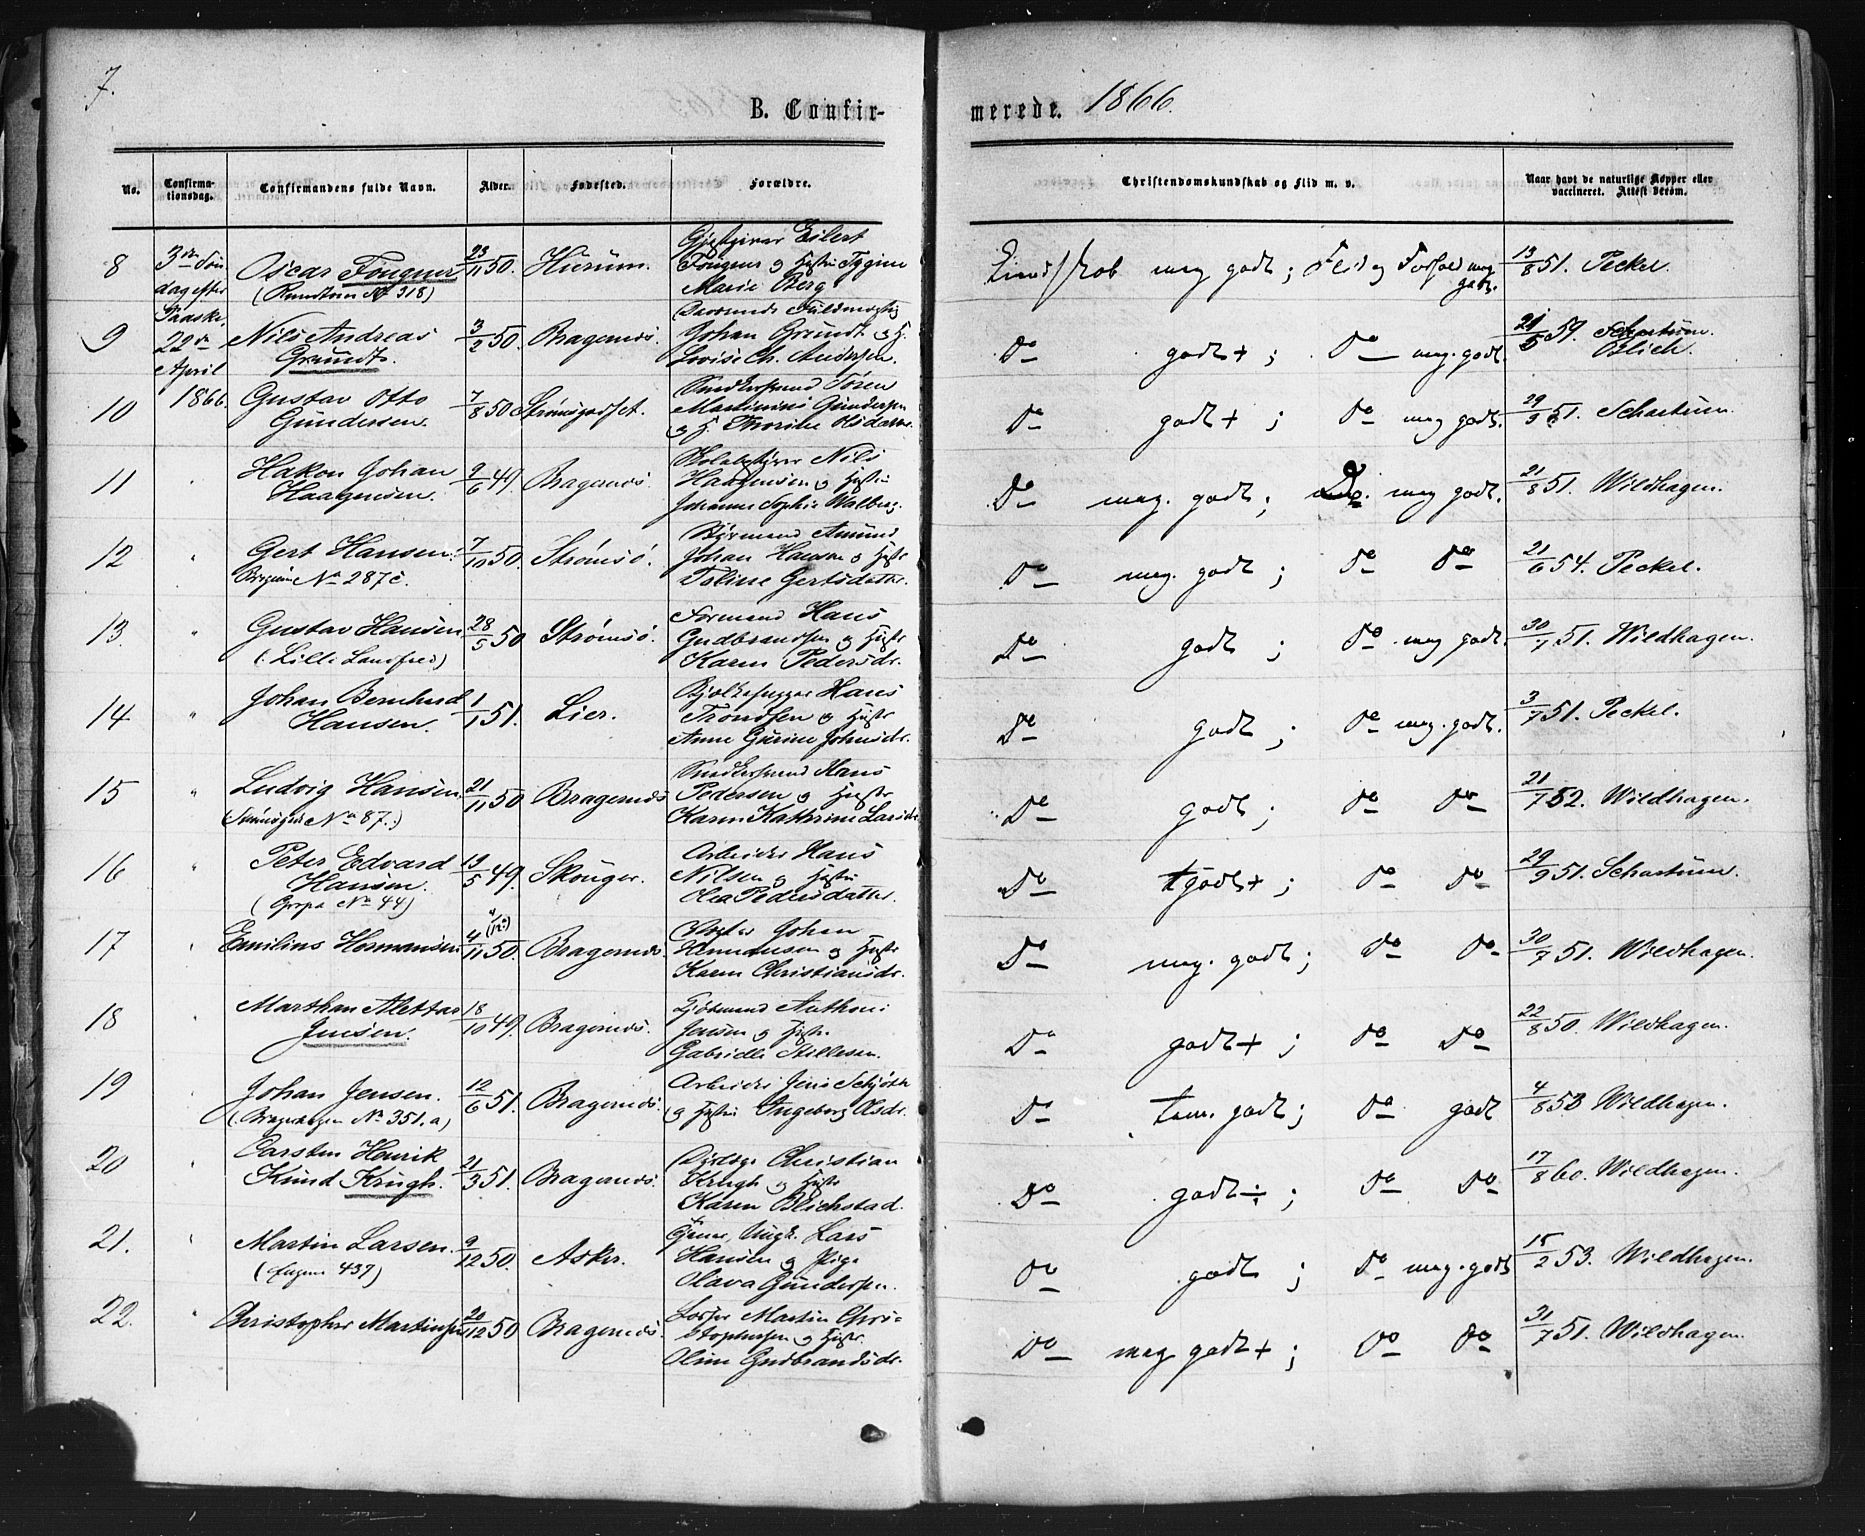 7.
B. Confir-
merede. 1866.
No. Confirma-tionsdag. Confirmandens fulde Navn. Alder. Fødested. Forældre. Christendomskundskab og Flid m. v. Naar havt de naturlige Kopper eller vaccineret. Attest derom.
8 3die Søn
dag efter
Paaske,
22de
April
1866.
Oscar Fougner 23/11 50. Hurum. Eilert
Fougner og Hustru
Marie Berg meg godt; Flid og Forhold meg godt. 13/8 51. Peckel.
(No 318)
9 Nils Andreas
Grundt. 3/2 50. Bragernæs. Fuldmægtig
Johan Grundt og H.
Lovise Ch. Andersen. Do godt+; Do meg. godt. 59. Schartum.
Blich.
10 Gustav Otto
Gundersen. 7/8 50 Strømsgodset. Søren
Martinius Gundersen
og H. Thorine Olsdatter. Do godt+; Do meg godt. 29/9 51. Schartum.
11 Hakon Johan
Haagensen. 9/6 49. Bragernæs. Nils
Haagensen og Hustru
Johanne Sophie Walberg. Do meg. godt; Do. meg godt. 21/8 51. Wildhagen.
12 Gert Hansen. 7/10 50. Strømsø. Amund
Johan Hansen og Hustr
Taline Gertsdatter. Do meg. godt; Do Do 21/6 54. Peckel.
No 287c.
13. Gustav Hansen 28/5 50 Strømsø. Formand Hans
Gudbrandsen og Hustr
Karen Pedersdr. Do godt; Do meg godt. 30/7 51. Wildhagen.
14 Johan Bernhard
Hansen. 1/1 51. Lier. Hans
Trondsen og Hustr
Anne Gurine Johnsdr. Do godt; Do meg. godt. 3/7 51. Peckel.
15 Ludvig Hansen. 21/11 50 Bragernæs Hans
Pedersen og Hustr
Karen Kathrine Larsdr. Do godt; Do Do 21/7 52. Wildhagen.
No 87.)
16 Peter Edvard
Hansen. 13/5 49. Skouger. Arbeider Hans
Nilsen og Hustru
Olea Pedersdatter. Do tgodt+; Do Do 29/9 51. Schartum.
No 44)
17 Emilius Hermansen 4/11 50. Bragernæs. Johan
Hermansen og Hustr
Karen Christiansdr. Do meg. godt; Do Do 30/7 51. Wildhagen.
18 Marthan Alettas
Jensen. 18/10 49. Bragernæs. Anthon
Jensen og Hustr.
Gabrielle Stillesen. Do godt+; Do Do 22/8 50. Wildhagen.
19 Johan Jensen. 12/6 51. Bragernæs. Arbeider Jens
og Hustru Ingeborg Olsdr. Do tem. godt; Do godt 4/8 53 Wildhagen.
No 351.a)
20 Carsten Henrik
Knud Krugh. 21/3 51. Bragernæs. Christian
Krugh og Hustr
Karen Blichstad. Do godt÷; Do Do 17/8 60. Wildhagen.
21. Martin Larsen. 9/12 50. Asker. Lars
Hansen og Pige
Olava Gundersen. Do godt; Do meg. godt 15/2 53. Wildhagen.
437)
22. Christopher Martinsen 20/12 50 Bragernæs. Martin Chri-
stophersen og Hustr.
Oline Gudbrandsdr. Do meg godt+; Do Do 31/7 51. Wildhagen.